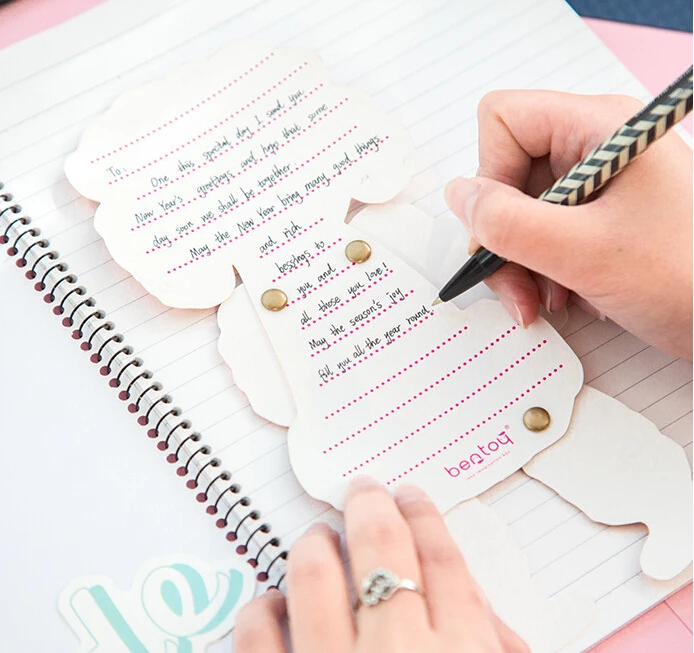 To:
One this special day I send you
New Year's greetings and hop that some
day soon we shall be together.
May the New Year bring many good things
and rich
bessings to
you and
all those you love!
May the season's joy
fill you all the year round.
bentoy®